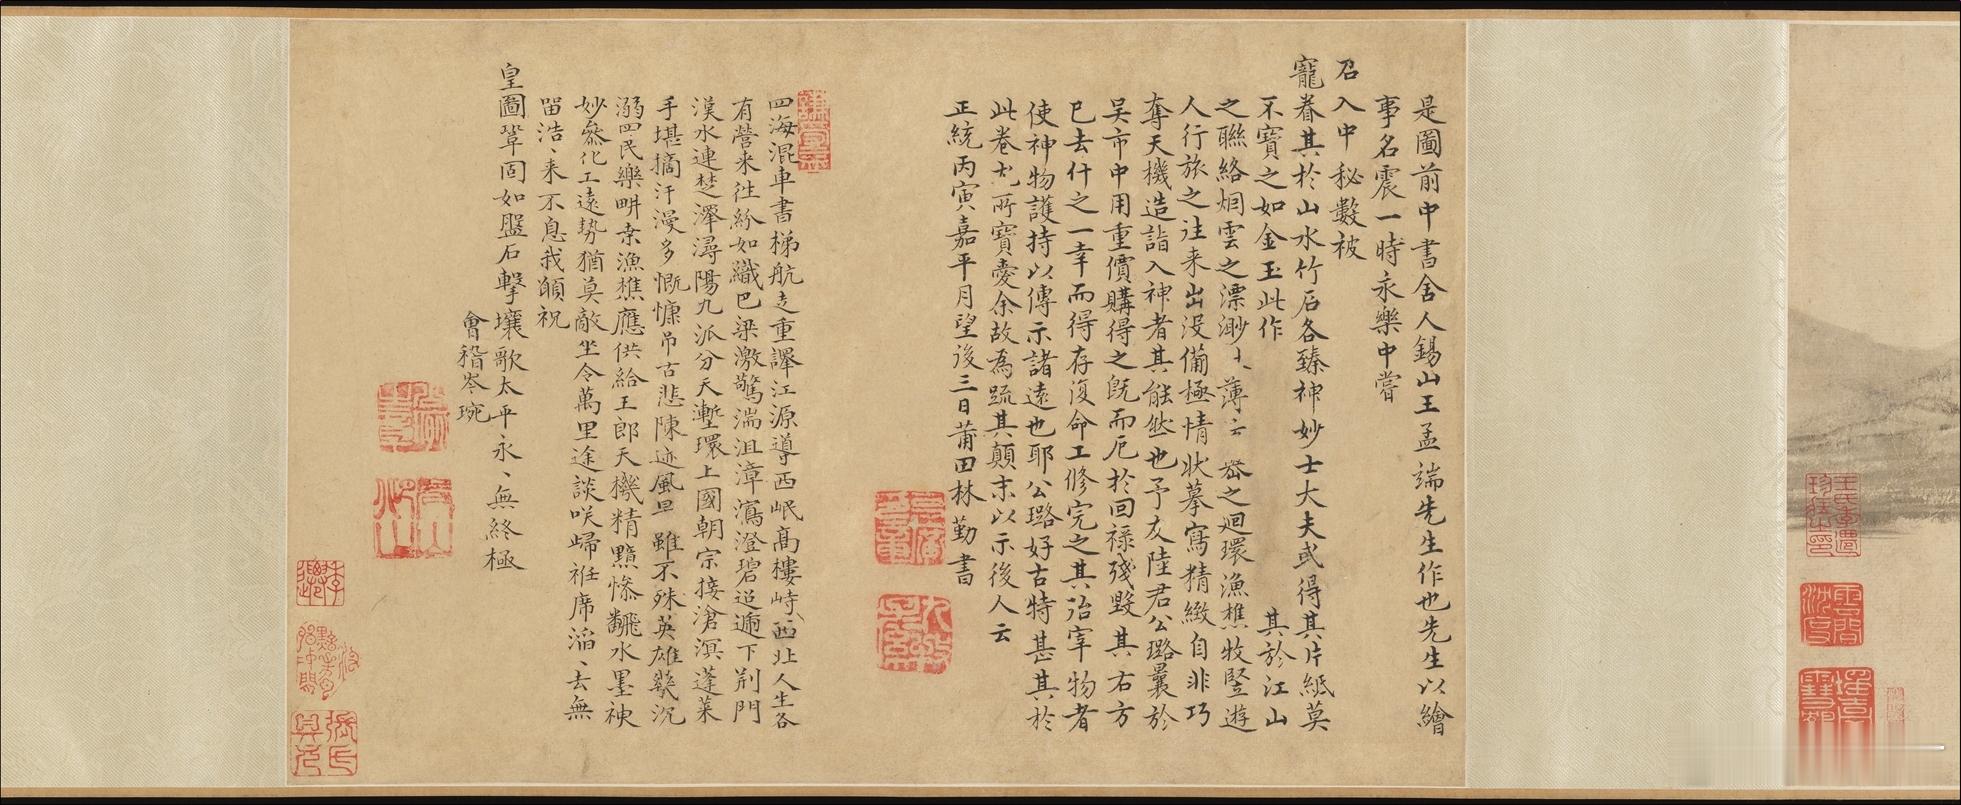 是圖前中書舍人錫山王孟端先生作也先生以繪
事名震一時永樂中嘗
召入中秘數被
寵眷其於山水竹石各臻神妙士大夫或得其片紙莫
不寶之如金玉此作其於江山
之聯絡烟雲之漂渺 薄 之迴環漁樵牧豎遊
人行旅之往来出没備極情狀摹寫精緻自非巧
奪天機造詣入神者其能然也予友陸君公璐曩於
吴市中用重價購得之既而厄於回祿殘毀其右方
已去什之一幸而得存復命工修完之其治宰物者
使神物護持以傳示諸遠也耶公璐好古特甚其於
此卷尤所寶愛余故為疏其顛末以示後人云
正統丙寅嘉平月望後三日莆田林勤書
四海混車書梯航走重譯江源導西岷高樓峙西北人生各
有營来往紛如織巴梁激驚湍沮漳瀉澄碧迢遞下荆門
漢水連楚澤潯陽九派分天塹環上國朝宗接滄溟蓬萊
手堪摘汗漫多慨慷吊古悲陳迹風 雖不殊英雄幾沉
溺四民樂畊桒漁樵應供給王郎天機精黯慘翻水墨神
妙叅化工遠勢猶莫敵坐令萬里途談咲歸袵席滔、去無
留浩、来不息我頠祝
皇圖鞏固如盤石擊壤歌太平永、無終極
會稽岑琬